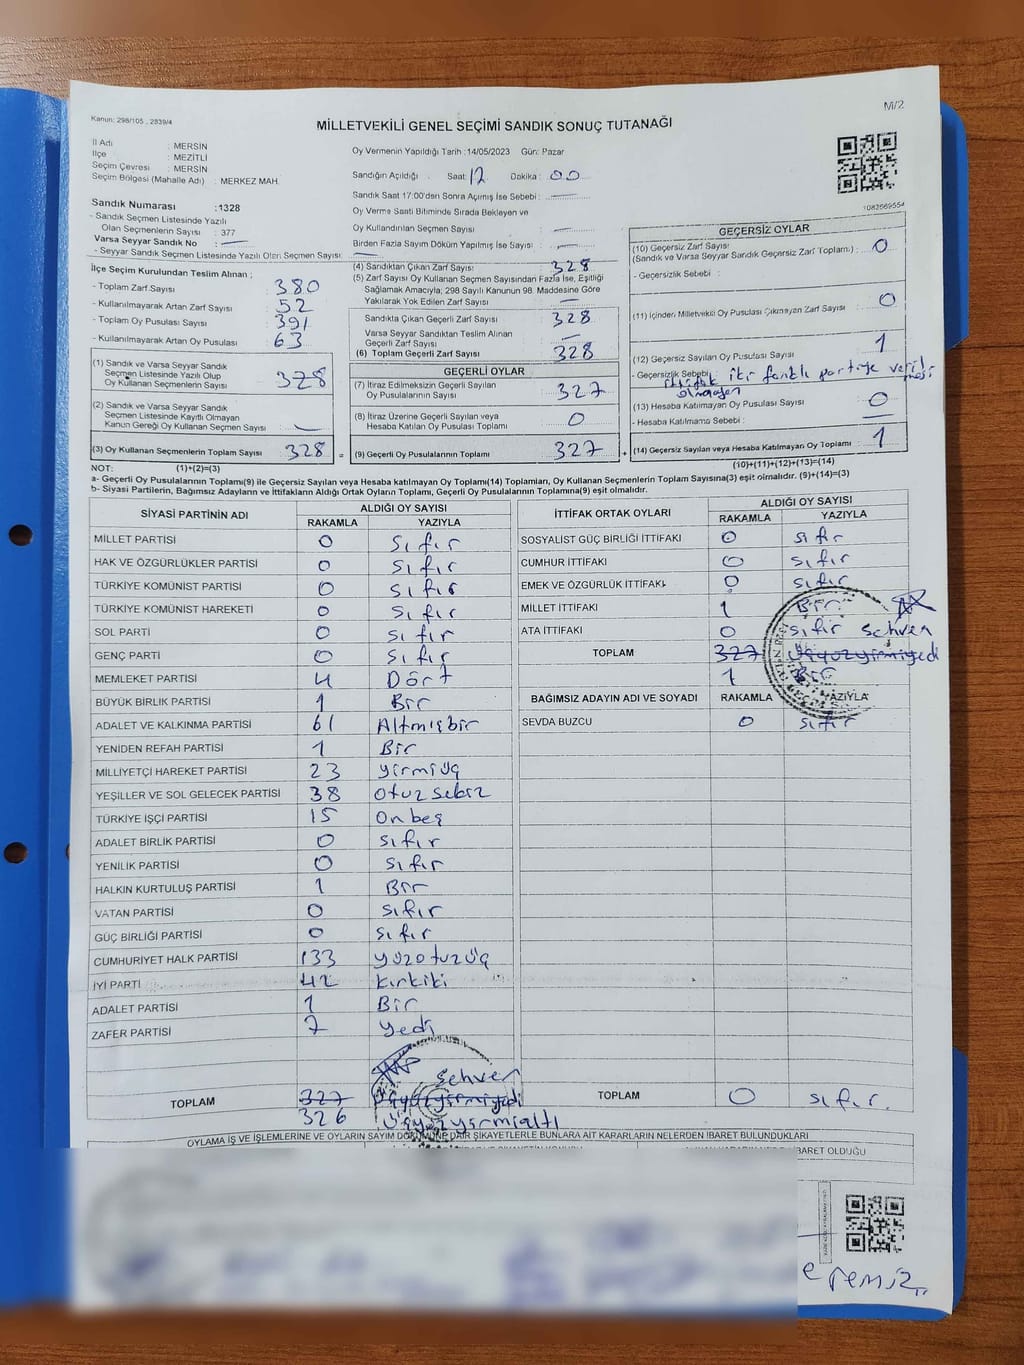 M/2
Kanun: 298/105 , 2839/4
MİLLETVEKİLİ GENEL SEÇİMİ SANDIK SONUÇ TUTANAĞI
İl Adı : MERSİN
İlçe : MEZİTLİ
Seçim Çevresi : MERSİN
Seçim Bölgesi (Mahalle Adı) : MERKEZ MAH.
Sandık Numarası :1328
- Sandık Seçmen Listesinde Yazılı
Olan Seçmenlerin Sayısı : 377
Varsa Seyyar Sandık No :
- Seyyar Sandık Seçmen Listesinde Yazılı Olan Seçmen Sayısı:
İlçe Seçim Kurulundan Teslim Alınan ;
- Toplam Zarf Sayısı : 380
- Kullanılmayarak Artan Zarf Sayısı : 52
- Toplam Oy Pusulası Sayısı : 391
- Kullanılmayarak Artan Oy Pusulası : 63
(1) Sandık ve Varsa Seyyar Sandık
Seçmen Listesinde Yazılı Olup
Oy Kullanan Seçmenlerin Sayısı : 328
(2) Sandık ve Varsa Seyyar Sandık
Seçmen Listesinde Kayıtlı Olmayan
Kanun Gereği Oy Kullanan Seçmen Sayısı :
(3) Oy Kullanan Seçmenlerin Toplam Sayısı : 328
Oy Vermenin Yapıldığı Tarih :14/05/2023 Gün: Pazar
Sandığın Açıldığı : Saat: 17 Dakika : 00
Sandık Saat 17:00'den Sonra Açılmış İse Sebebi :
Oy Verme Saati Bitiminde Sırada Bekleyen ve
Oy Kullandırılan Seçmen Sayısı :
Birden Fazla Sayım Döküm Yapılmış İse Sayısı :
(4) Sandıktan Çıkan Zarf Sayısı : 328
(5) Zarf Sayısı Oy Kullanan Seçmen Sayısından Fazla İse, Eşitliği
Sağlamak Amacıyla; 298 Sayılı Kanunun 98. Maddesine Göre
Yakılarak Yok Edilen Zarf Sayısı :
Sandıkta Çıkan Geçerli Zarf Sayısı : 328
Varsa Seyyar Sandıktan Teslim Alınan
Geçerli Zarf Sayısı :
(6) Toplam Geçerli Zarf Sayısı : 328
GEÇERLİ OYLAR
(7) İtiraz Edilmeksizin Geçerli Sayılan
Oy Pusulalarının Sayısı : 327
(8) İtiraz Üzerine Geçerli Sayılan veya
Hesaba Katılan Oy Pusulası Toplamı : 0
= (9) Geçerli Oy Pusulalarının Toplamı : 327
1082669554
GEÇERSİZ OYLAR
(10) Geçersiz Zarf Sayısı
(Sandık ve Varsa Seyyar Sandık Geçersiz Zarf Toplamı) : 0
- Geçersizlik Sebebi :
(11) İçinden Milletvekili Oy Pusulası Çıkmayan Zarf Sayısı : 0
(12) Geçersiz Sayılan Oy Pusulası Sayısı : 1
- Geçersizlik Sebebi : ittifak iki farklı partiye verilmesi
olmayan
(13) Hesaba Katılmayan Oy Pusulası Sayısı : 0
- Hesaba Katılmama Sebebi :
+ (14) Geçersiz Sayılan veya Hesaba Katılmayan Oy Toplamı : 1
NOT: (1)+(2)=(3) (10)+(11)+(12)+(13)=(14)
a- Geçerli Oy Pusulalarının Toplamı(9) ile Geçersiz Sayılan veya Hesaba Katılmayan Oy Toplamı(14) Toplamları, Oy Kullanan Seçmenlerin Toplam Sayısına(3) eşit olmalıdır. (9)+(14)=(3)
b- Siyasi Partilerin, Bağımsız Adayların ve İttifakların Aldığı Ortak Oyların Toplamı, Geçerli Oy Pusulalarının Toplamına(9) eşit olmalıdır.
SİYASİ PARTİNİN ADI ALDIĞI OY SAYISI
RAKAMLA YAZIYLA
MİLLET PARTİSİ 0 Sıfır
HAK VE ÖZGÜRLÜKLER PARTİSİ 0 Sıfır
TÜRKİYE KOMÜNİST PARTİSİ 0 Sıfır
TÜRKİYE KOMÜNİST HAREKETİ 0 Sıfır
SOL PARTİ 0 Sıfır
GENÇ PARTİ 0 Sıfır
MEMLEKET PARTİSİ 4 Dört
BÜYÜK BİRLİK PARTİSİ 1 Bir
ADALET VE KALKINMA PARTİSİ 61 Altmışbir
YENİDEN REFAH PARTİSİ 1 Bir
MİLLİYETÇİ HAREKET PARTİSİ 23 yirmiüç
YEŞİLLER VE SOL GELECEK PARTİSİ 38 otuzsekiz
TÜRKİYE İŞÇİ PARTİSİ 15 onbeş
ADALET BİRLİK PARTİSİ 0 Sıfır
YENİLİK PARTİSİ 0 Sıfır
HALKIN KURTULUŞ PARTİSİ 1 Bir
VATAN PARTİSİ 0 Sıfır
GÜÇ BİRLİĞİ PARTİSİ 0 Sıfır
CUMHURİYET HALK PARTİSİ 133 yüzotuzüç
İYİ PARTİ 42 kırkiki
ADALET PARTİSİ 1 Bir
ZAFER PARTİSİ 7 yedi
Sehven
TOPLAM 327 Üçyüzyirmiyedi
326 Üçyüzyirmialtı
İTTİFAK ORTAK OYLARI ALDIĞI OY SAYISI
RAKAMLA YAZIYLA
SOSYALİST GÜÇ BİRLİĞİ İTTİFAKI 0 sıfır
CUMHUR İTTİFAKI 0 sıfır
EMEK VE ÖZGÜRLÜK İTTİFAKI 0 sıfır
MİLLET İTTİFAKI 1 Bir
ATA İTTİFAKI 0 sıfır sehven
TOPLAM 327 Üçyüzyirmiyedi
1 Bir
BAĞIMSIZ ADAYIN ADI VE SOYADI RAKAMLA YAZIYLA
SEVDA BUZCU 0 sıfır
TOPLAM 0 sıfır.
OYLAMA İŞ VE İŞLEMLERİNE VE OYLARIN SAYIM DÖKÜMÜNE DAİR ŞİKAYETLERLE BUNLARA AİT KARARLARIN NELERDEN İBARET BULUNDUKLARI
İBARET OLDUĞU